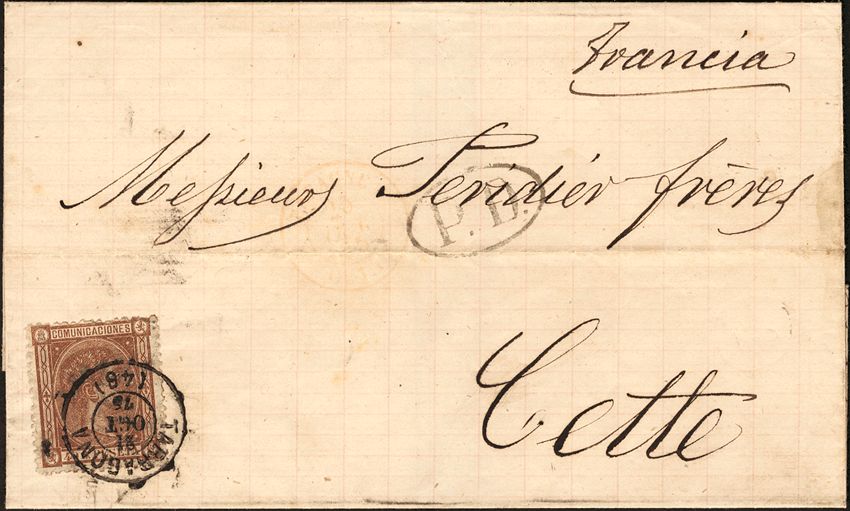 Francia
Messieurs Peridier frères
P.D.
Cette
COMUNICACIONES
TARRAGONA
OCT
75
(48)